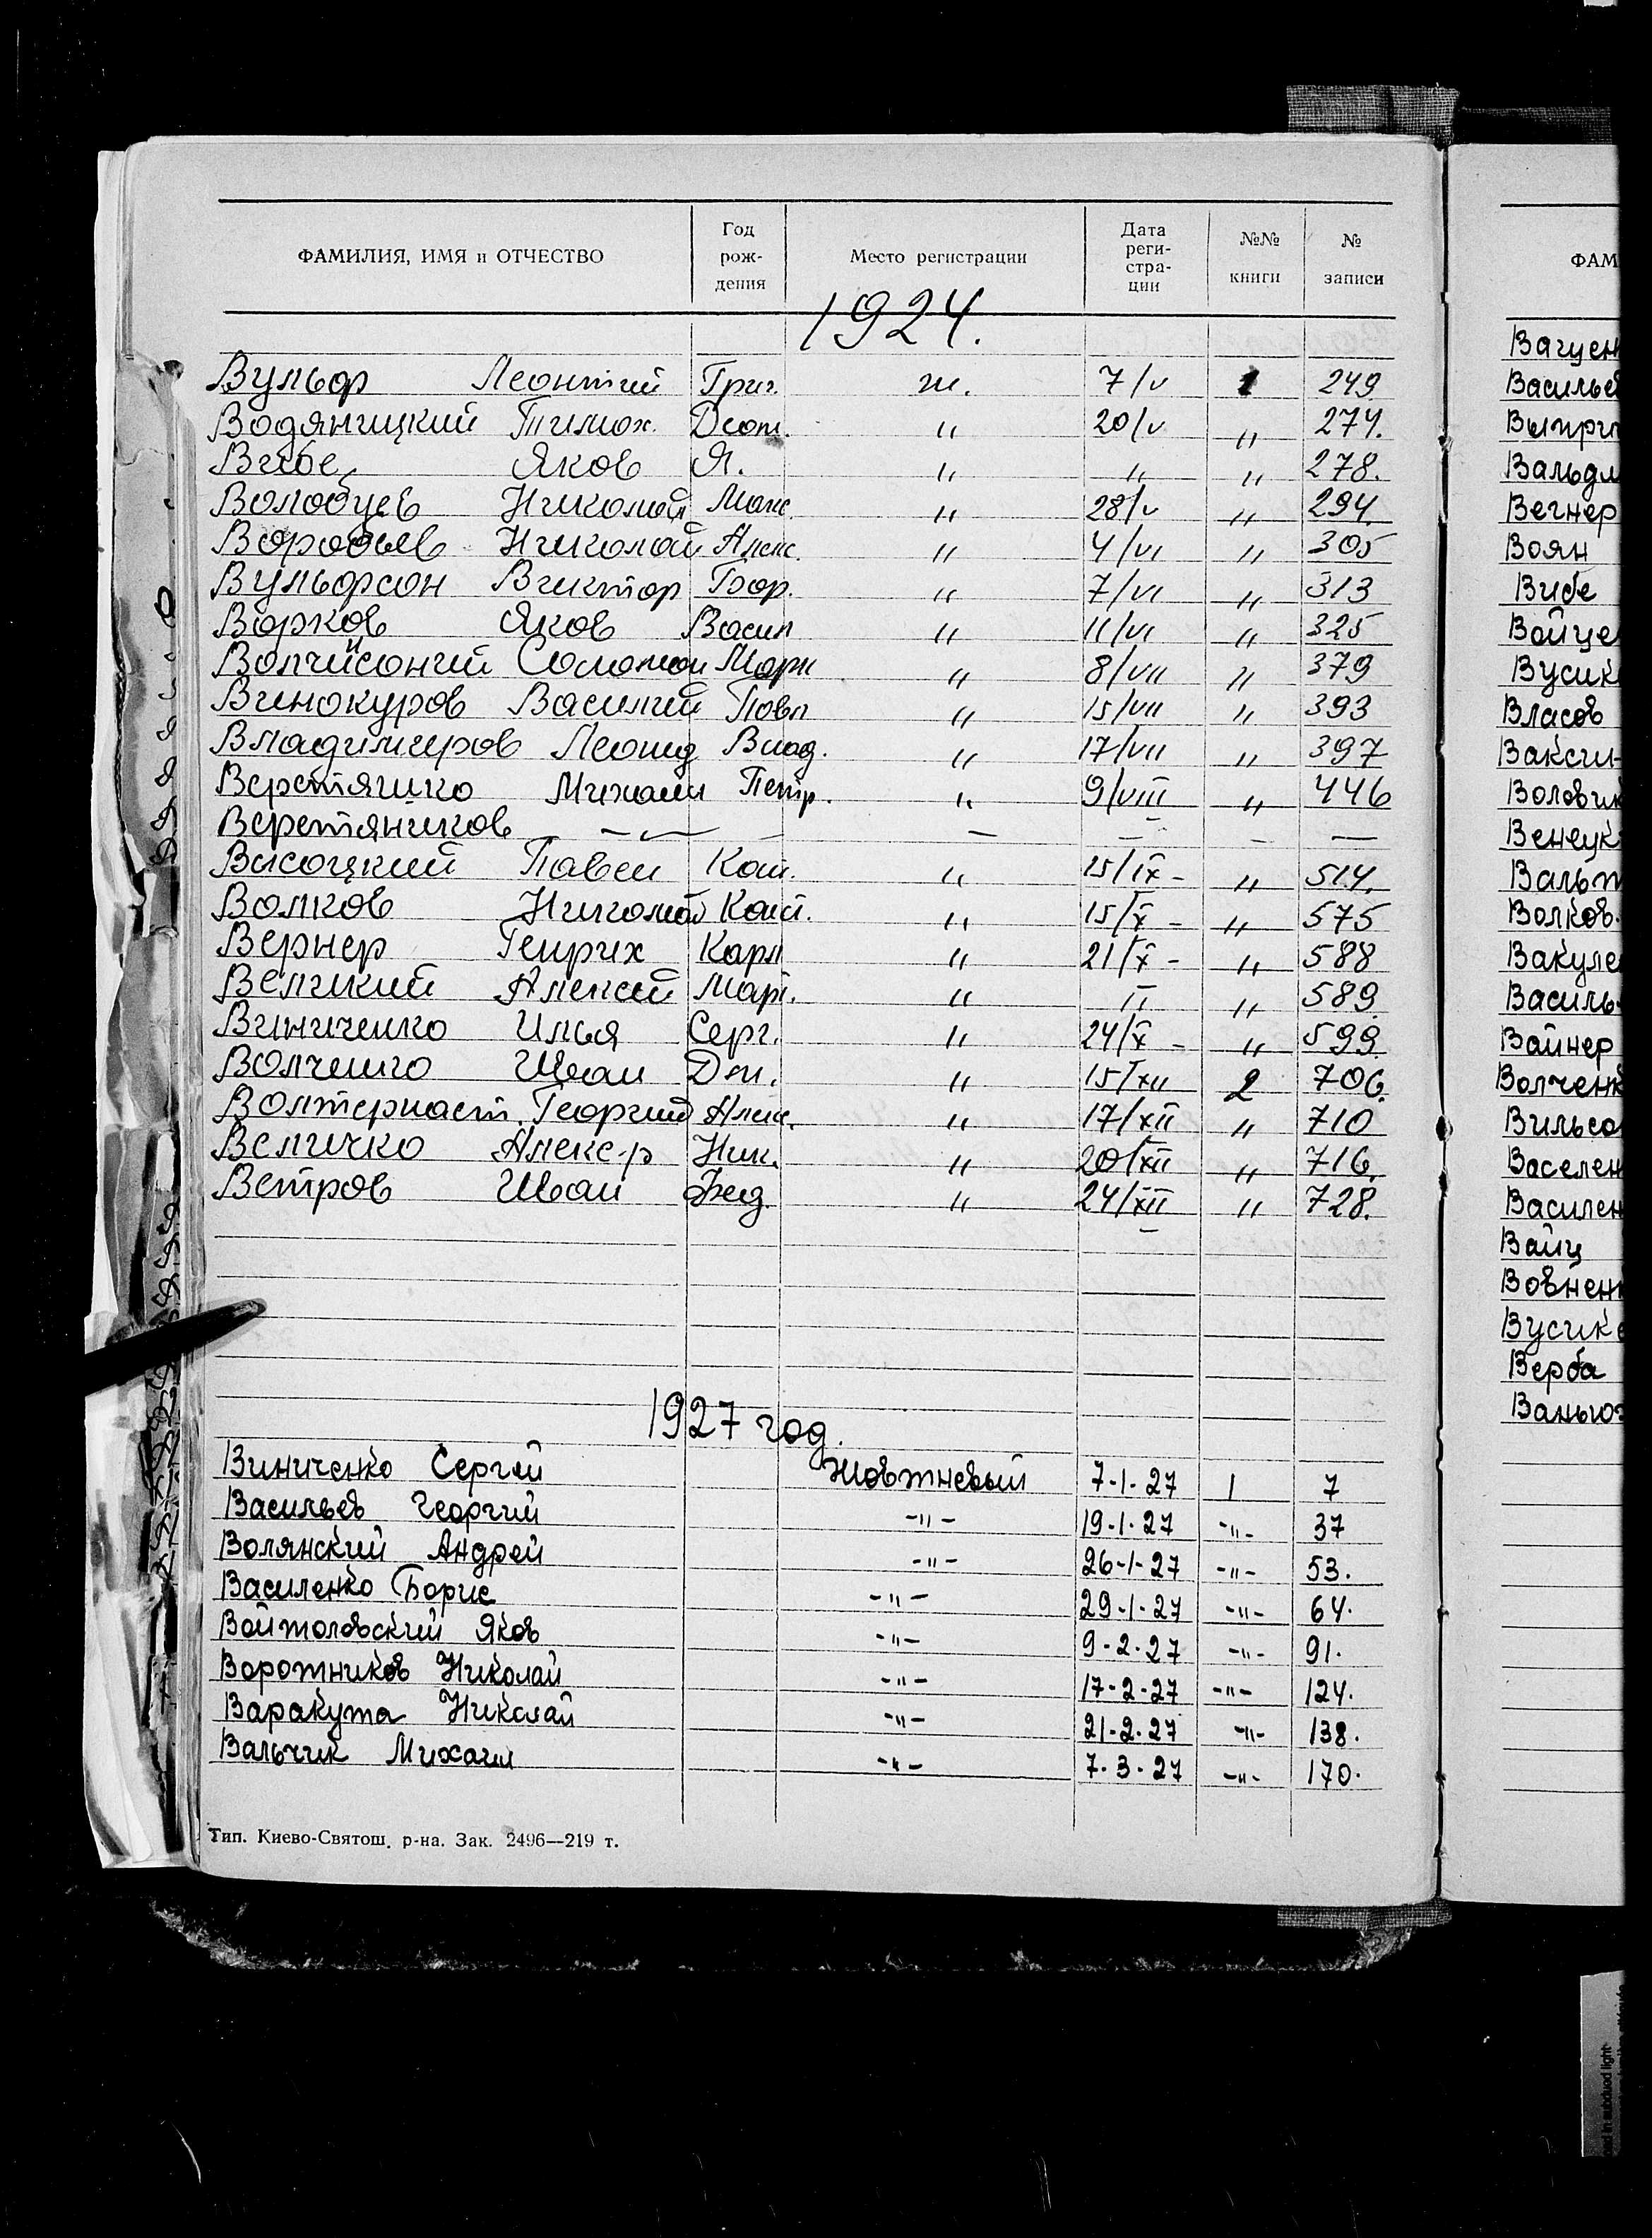 ФАМИЛИЯ, ИМЯ и ОТЧЕСТВО Год рож- дения Место регистрации Дата реги- стра- ции №№ книги № записи
1924.
Вульф Леонтий Григ. ж. 7/V 1 249
Водяницкий Тимох. " 20/V " 274.
Вибе Яков Я. " " " 278.
Володцев Николай Макс. " 28/V " 294.
Воробьев Николай Алекс. " 4/VI " 305
Вульфсон Виктор Бор. " 7/VI " 313
Ворков Яков Васил " 11/VI " 325
Соломон Марк " 8/VII " 379
Винокуров Василий Павл " 15/VII " 393
Владимиров Леонид Влад. " 17/VII " 397
Веретяшко Михаил Петр. " 9/VIII " 446
Веретянников — — — — —
Высоцкий Павел " 15/IX - " 514.
Волков Николай " 15/X - " 575
Вернер Генрих Карл " 21/X - " 588
Великий Алексей " " " 589.
Виниченко Илья Серг. " 24/X - " 599.
Волченко Иван " 15/XII 2 706.
Георгий Алек. " 17/XII " 710
Величко Алекс-р Ник. " 20/XII " 716.
Ветров Иван Фед. " 24/XII " 728.
1927 год.
Виниченко Сергей Жовтневый 7-1-27 1 7
Васильев Георгий -"- 19-1-27 -"- 37
Волянский Андрей -"- 26-1-27 -"- 53.
Василенко Борис -"- 29-1-27 -"- 64.
Войтоловский Яков -"- 9-2-27 -"- 91.
Воротников Николай -"- 17-2-27 -"- 124.
Варакута Николай -"- 21-2-27 -"- 138.
Вальчик Михаил -"- 7-3-27 -"- 170.
Тип. Киево-Святош. р-на. Зак. 2496—219 т.
ФАМ
Вагцен
Василье
Выпри
Вальдм
Вегнер
Воян
Вибе
Войце
Вусик
Власов
Ваксин
Воловик
Венецк
Вальт
Волков
Вакуле
Василь
Вайнер
Волченк
Вильсо
Васелен
Василен
Вайц
Вовнен
Вусик
Верба
Ванью